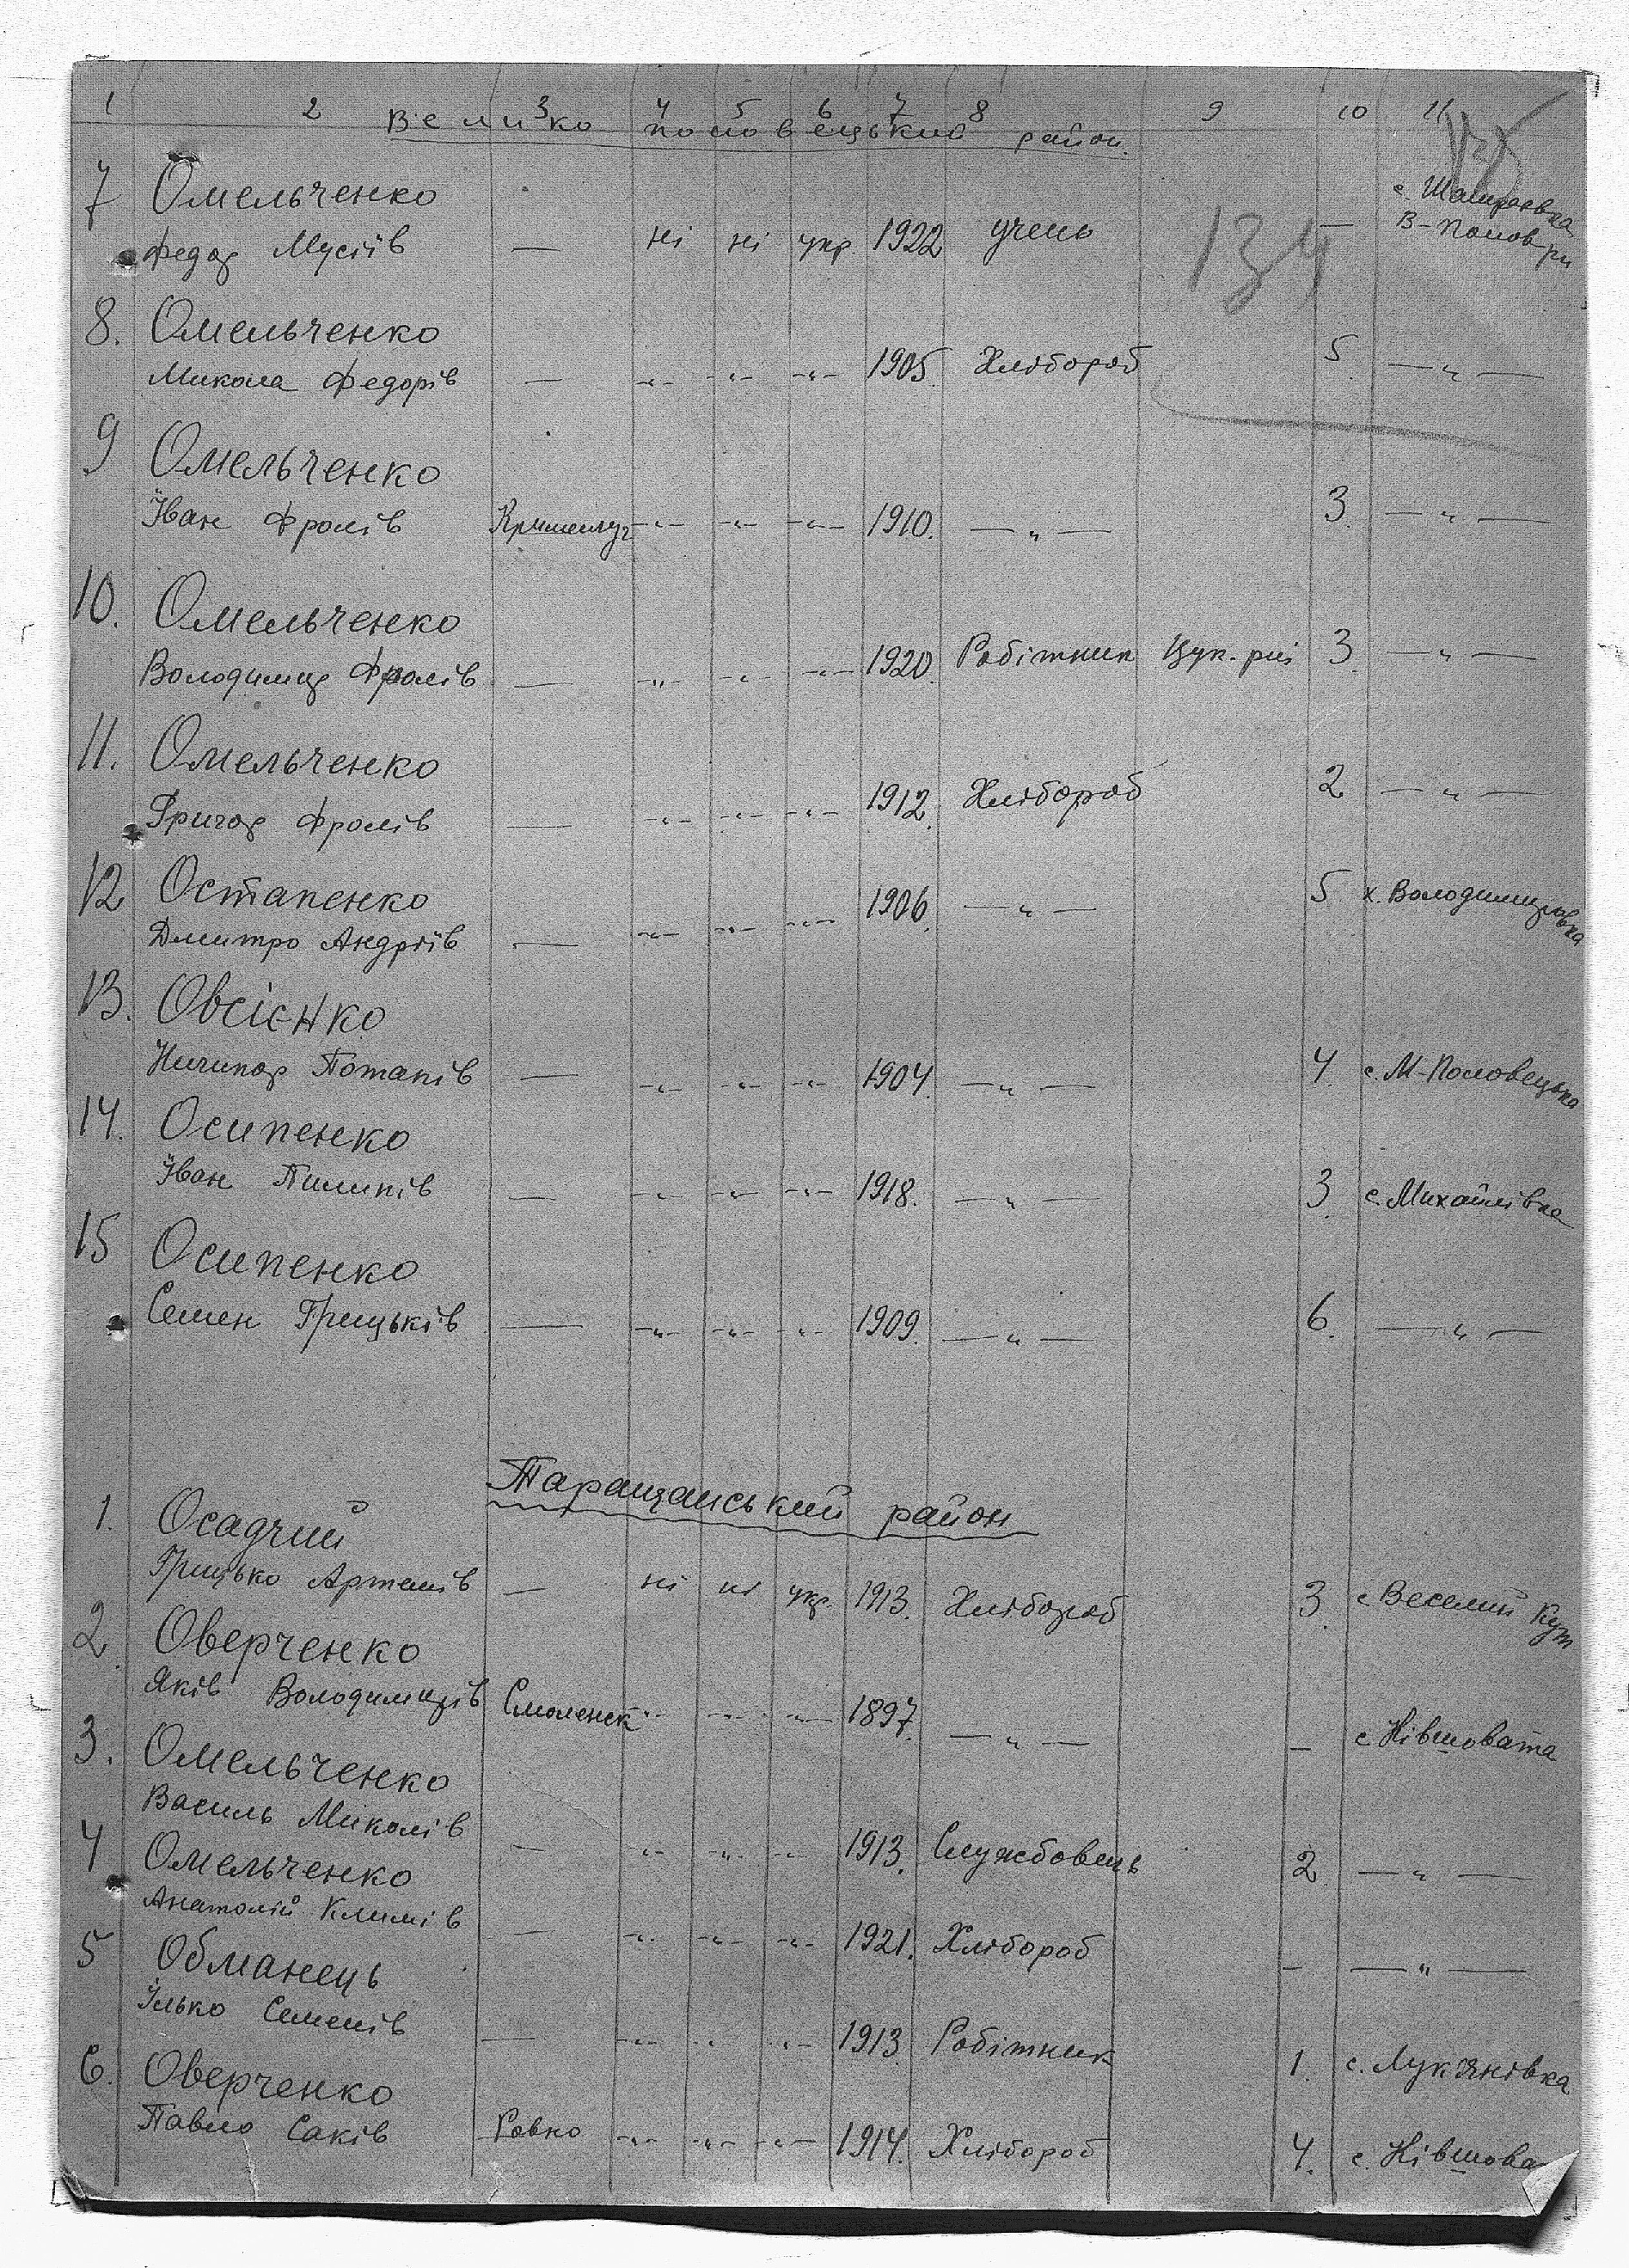 1 2 3 4 5 6 7 8 9 10 11
Велико половецький район.
134
7 Омельченко с. Шамраєвка
Федор Мусіїв — ні ні укр. 1922 учень — В-Полов-рн
8. Омельченко
Микола Федорів — -"- -"- -"- 1905. Хлібороб 5 — " —
9 Омельченко
Іван Фролів Кришемуг -"- -"- -"- 1910. — " — 3. — " —
10. Омельченко
Володимир Фролів — -"- -"- -"- 1920. Робітник Цук. 3 — " —
11. Омельченко
Григор Фролів — -"- -"- -"- 1912. Хлібороб 2 — " —
12 Остапенко
Дмитро Андріїв — -"- -"- -"- 1906. — " — 5 х. Володимировка
13. Овсієнко
Ничипор Потапів — -"- -"- -"- 1904. — " — 4. с. М-Половецька
14. Осипенко
Іван Пилипів — -"- -"- -"- 1918. — " — 3. с. Михайлівка
15 Осипенко
Семен Грицьків — -"- -"- -"- 1909. — " — 6. — " —
Таращанський район
1. Осадчий
Грицько Артемів — ні ні укр. 1913. Хлібороб 3. с Веселий Кут
2. Оверченко
Яків Володимирів Смоленск -"- -"- -"- 1897. — " — — с Ківшовата
3. Омельченко
Василь Миколів — -"- -"- -"- 1913. Службовець 2 — " —
4 Омельченко
Анатолій Климів — -"- -"- -"- 1921. Хлібороб — — " —
5 Обманець
Ілько Семенів — -"- -"- -"- 1913 Робітник 1. с. Лук'янівка
6. Оверченко
Павло Саків Ровно -"- -"- -"- 1914. Хлібороб 4. с. Ківшова